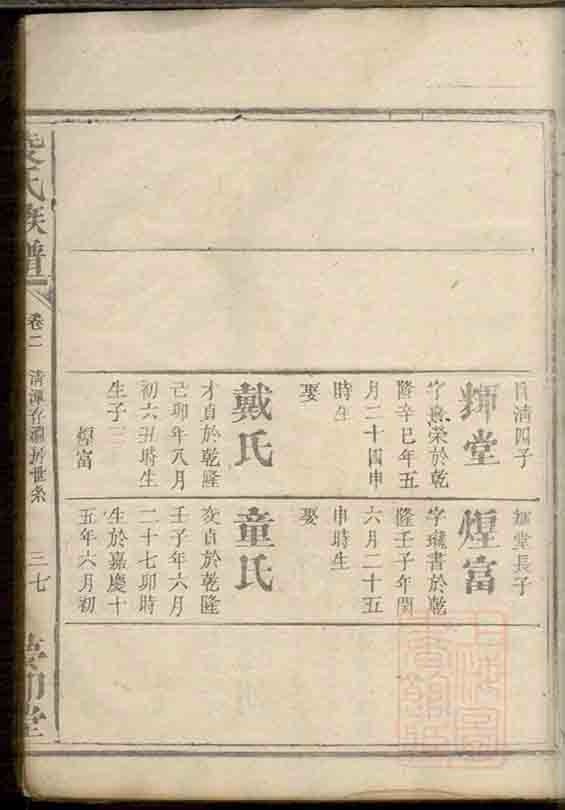 清四子
輝堂
字榮於乾
隆辛巳年五
月二十四申
時生
娶
戴氏
於乾隆
己卯年八月
初六丑時生
生子
煌富
輝堂長子
煌富
字瓏書於乾
隆壬子年閏
六月二十五
申時生
娶
童氏
貞於乾隆
壬子年六月
二十七卯時
生於嘉慶十
五年六月初
氏族譜
卷二
清潭世系
三七
堂
上海圖書館藏